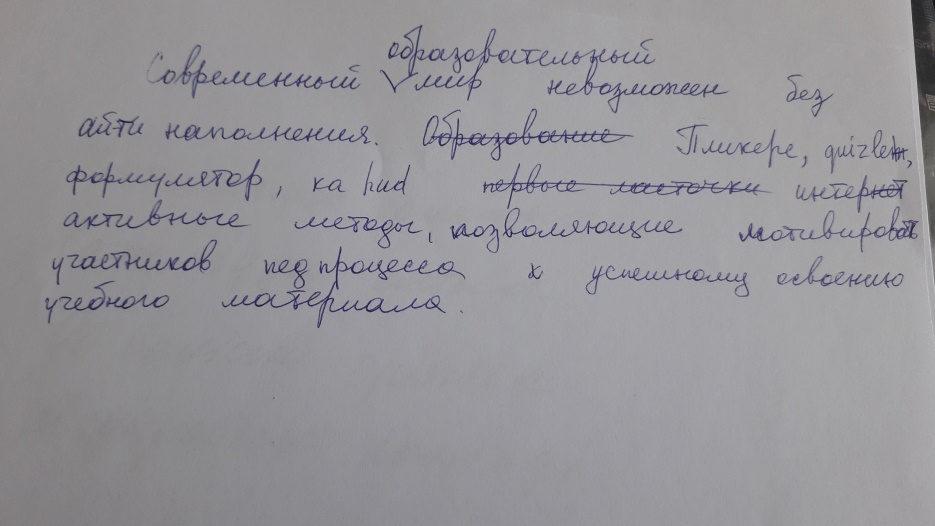 образовательный
Современный мир невозможен без
айти наполнения. Образование Пликерс, quizlet,
формулятор, ка hud первые ласточки интер
активные методы, позволяющие мотивировать
участников педпроцесса к успешному освоению
учебного материала.